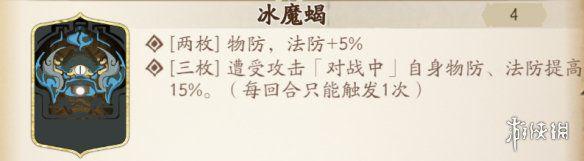 冰魔蝎
4
[两枚] 物防，法防+5%
[三枚] 遭受攻击「对战中」自身物防、法防提高
15%。（每回合只能触发1次）
游侠网